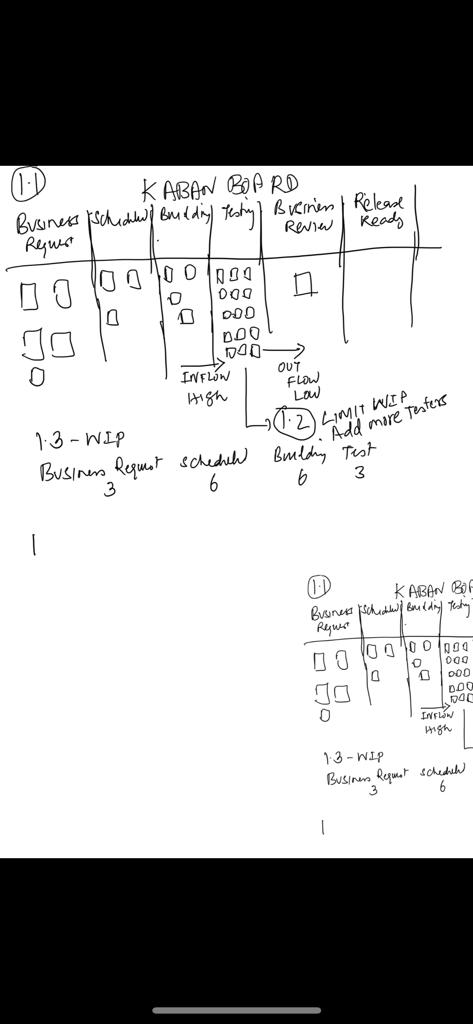 1.1
KABAN BOARD
Business Request
Scheduled
Building
Testing
Business Review
Release Ready
INFLOW High
OUT FLOW Low
1.2 LIMIT WIP
Add more Testers
1.3 - WIP
Business Request Scheduled Building Test
3 6 6 3
1.1
KABAN BOA
Business Request
Scheduled
Building
Testing
INFLOW High
1.3 - WIP
Business Request Scheduled
3 6